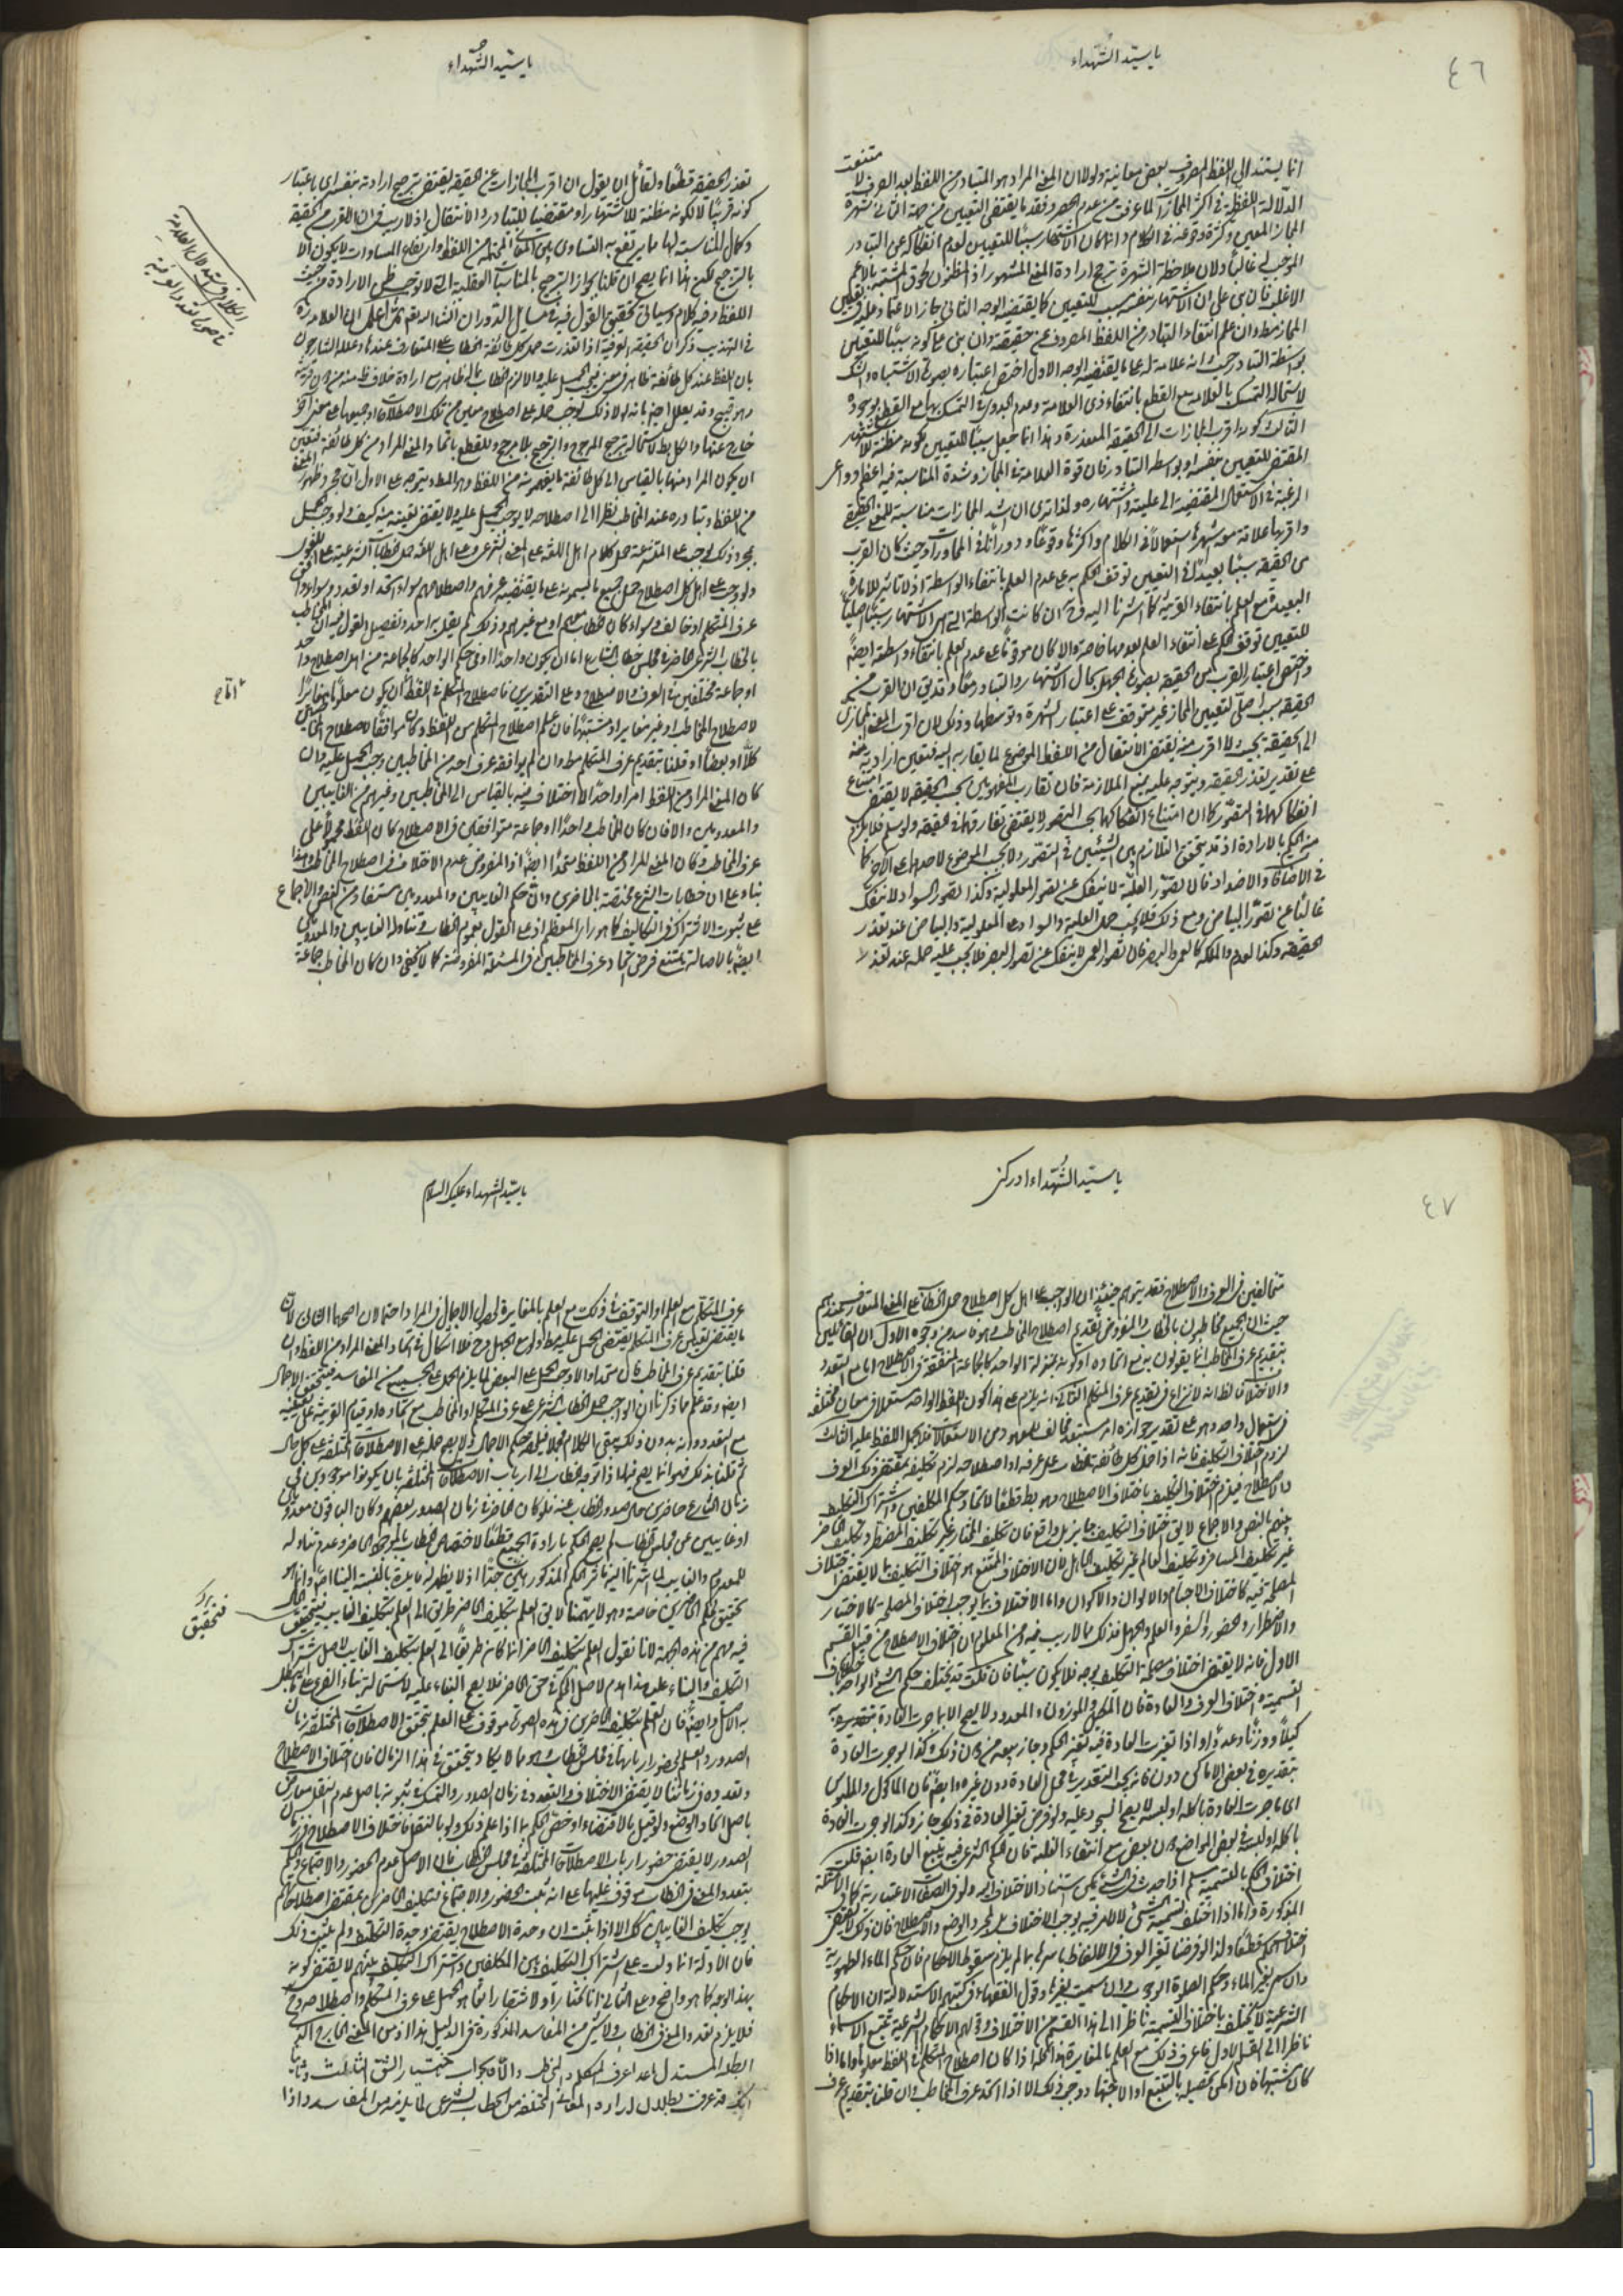 ٤٦
يا سيد الشهداء
انما يستند الى اللفظ المصروف بعض معانيه ولولا ان المعنى المراد هو المتبادر من اللفظ بعد الصرف لامتنعت
الدلالة اللفظية في اكثر المجازات لما عرفت من عدم الحصر وفقد ما يقتضى التعيين من جهة الثانى شهرة
المجاز المعين وكثرة وقوعه في الكلام وانما كان الاشتهار سببًا للتعيين لعدم انفكاكه عن التبادر
الموجب له غالبًا ولان ملاحظة الشهرة ترجح ارادة المعنى المشهور اذ المظنون لحوق المشتبه بالاعم
الاغلب فان بنى على ان الاشتهار بنفسه سبب للتعيين كما يقتضيه الوجه الثانى جاز الاعتماد عليه في تعيين
المجاز مط وان علم انتفاء التبادر من اللفظ المصروف عن حقيقته وان بنى على كونه سببًا للتعيين
بواسطة التبادر حيث انه علامة له كما يقتضيه الوجه الاول اختص اعتباره بصورة الاشتباه والشك
لاستحالة التمسك بالعلامة مع القطع بانتفاء ذى العلامة وعدم الجدوى في التمسك بها مع القطع بوجوده
الثالث كونه اقرب المجازات الى الحقيقة المتعذرة وهذا انما جعل سببًا للتعيين لكونه مظنة للاشتهار
المقتضى للتعيين بنفسه او بواسطة التبادر فان قوة العلامة في المجاز وشدة المناسبة فيه اعظم دواعى
الرغبة في الاستعمال المقتضية الى غلبته واشتهاره ولذا ترى ان اشد المجازات مناسبة للمعنى الحقيقى
واقربها علاقة معه اشهرها استعمالاً في الكلام واكثرها وقوعًا ودورانًا في المحاورات وحيث كان القرب
من الحقيقة سببًا بعيدًا في التعيين توقف الحكم به على عدم العلم بانتفاء الواسطة اذ لا تاثير للامارة
البعيدة مع العلم بانتفاء القريبة كما اشرنا اليه
للتعيين توقف الحكم على انتفاء العلم بعدمها خاصة والا كان موقوفًا على عدم العلم بانتفاء واسطته ايضًا
واختص اعتبار القرب من الحقيقة بصورة الجهل بحال الاشتهار والتبادر معًا وقد يق ان القرب من
الحقيقة سبب اصلى لتعيين المجاز غير متوقف على اعتبار الشهرة وتوسطها وذلك لان اقرب المعنى المجازى
الى الحقيقة بحيث لا اقرب منه يقتضى الانتقال من اللفظ الموضوع لما يقاربه اليه فتعين ارادته منه
على تقدير تعذر الحقيقة ويتوجه عليه منع الملازمة فان تقارب المفهومين بحسب الحقيقة لا يقتضى امتناع
انفكاكهما في التصور كما ان امتناع انفكاكهما بحسب التصور لا يقتضى تقاربهما في الحقيقة ولو سلم فلا يلزم
منه الحكم بالارادة اذ قد يتحقق التلازم بين الشيئين في التصور ولا يجب الموضوع لاحدهما على الاخر كما
في الاضافات والاضداد فان تصور العلية لا ينفك عن تصور المعلولية وكذا تصور السواد لا ينفك
غالبًا عن تصور البياض ومع ذلك فلا يجب حمل العلية والسواد على المعلولية والبياض عند تعذر
الحقيقة وكذا العدم والملكة كالعمى والبصر فان تصور العمى لا ينفك عن تصور البصر فلا يجب عليه حمله عند تعذر
يا سيد الشهداء
تعذر الحقيقة قطعًا ولقائل ان يقول ان اقرب المجازات عن الحقيقة يقتضى ترجح ارادته بنفسه اى باعتبار
كونه قريبًا لا لكونه مظنة للاشتهار او مقتضيا للتبادر والانتقال اذ لا ريب في ان القرب من الحقيقة
وكمال المناسبة لها مما يرتفع به التساوى بين المعانى المحتملة من اللفظ وارتفاع المساوات لا يكون الا
بالترجيح لكن هذا انما يصح ان قلنا بجواز الترجيح بالمناسبات العقلية التى لا توجب ظن الارادة من حيث
اللفظ وفيه كلام وسياتى تحقيق القول فيه في مسايل الدوران انشاء الله تع ثم اعلم ان العلامة ره
في التهذيب ذكر ان الحقيقة العرفية اذا تعذرت حمل كل طائفة الخطاب على المتعارف عندها وعلله الشارحون
بان اللفظ عند كل طائفة ظاهر في معنى فيجب الحمل عليه والا لزم الخطاب بما له ظاهر مع ارادة خلافه منه من دون قرينة
وهو قبيح وقد يعلل ايضا بانه لولا ذلك لوجب حمله على اصطلاح معين من تلك الاصطلاحات او جميعها على معنى آخر
خارج عنها والكل بط لاستحالة ترجيح المرجوح والترجيح بلا مرجح وللقطع باتحاد المعنى المراد من كل طائفة فتعين
ان يكون المراد منها بالقياس الى كل طائفة ما يفهمونه من اللفظ وهو المط ويتوجه على الاول ان مجرد ظهور المعنى
من اللفظ وتبادره عند المخاطب نظرا الى اصطلاحه لا يوجب الحمل عليه ولا يقتضى تعينه منه كيف ولو وجب الحمل
بمجرد ذلك لوجب على المتشرعة حمل كلام اهل اللغة على المعنى الشرعى وعلى اهل اللغة حمل الخطابات الشرعية على اللغوى
ولوجب على اهل كل اصطلاح حمل جميع ما يسمعونه على ما يقتضيه عرفهم واصطلاحهم سواء اتحد او تعدد وسواء وافق
عرف المتكلم او خالف وسواء كان الخطاب معهم او مع غيرهم وذلك لم يقل به احد وتفصيل القول فيه ان المخاطب
بالخطاب الشرعى الحاضر في مجلس خطاب الشارع اما ان يكون واحدًا او في حكم الواحد كالجماعة من اهل اصطلاح واحد
او جماعة مختلفين في العرف والاصطلاح وعلى التقديرين فاصطلاح المتكلم في اللفظ اما ان يكون معلومًا مغايرًا
لاصطلاح المخاطب او غير مغاير او مشتبهًا فان علم اصطلاح المتكلم من اللفظ وكان موافقًا لاصطلاح المخاطبين
كلاً او بعضًا او قلنا بتقديم عرف المتكلم مط وان لم يوافقه عرف احد من المخاطبين وجب الحمل عليه وان
كان المعنى المراد من اللفظ امرا واحدًا لا اختلاف فيه بالقياس الى المخاطبين وغيرهم من الغايبين
والمعدومين والا فان كان المخاطب واحدًا او جماعة متوافقين في الاصطلاح كان اللفظ محمولاً على
عرف المخاطب وكان المعنى المراد من اللفظ متحدًا ايضًا اذ المفروض عدم الاختلاف في اصطلاح المخاطب وهذا
بناء على ان خطابات الشرع مختصة بالحاضرين وان حكم الغايبين والمعدومين مستفاد من النص والاجماع
على ثبوت الاشتراك في التكاليف كما هو راى المعظم اذ على القول بعموم الخطاب وتناوله الغايبين والمعدومين
ايضًا بالاصالة يمتنع فرض اتحاد عرف المخاطبين في المسئلة المفروضة كما لا يخفى وان كان المخاطب جماعة
٤٧
يا سيد الشهداء ادركنى
متخالفين في العرف والاصطلاح فقد يتوهم حينئذٍ ان الواجب على اهل كل اصطلاح حمل الخطاب على المعنى المتعارف عندهم
حيث ان الجميع مخاطبون بالخطاب والمفروض تقديم اصطلاح المخاطب وهو فاسد من وجوه الاول ان القائلين
بتقديم عرف المخاطب انما يقولون به مع اتحاده او كونه بمنزلة الواحد كالجماعة المتفقة في الاصطلاح اما مع التعدد
والاختلاف فظ انه لا نزاع في تقديم عرف المتكلم الثانى انه يلزم على هذا كون اللفظ الواحد مستعملا في معان مختلفة
في استعمال واحد وهو على تقدير جوازه امر مستبعد مخالف للمعهود من الاستعمالات فلا يحمل اللفظ عليه الثالث
لزوم اختلاف التكليف فانه اذا حمل كل طائفة الخطاب على عرفه او اصطلاحه لزم تكليفه بمقتضى ذلك العرف
والاصطلاح فيلزم اختلاف التكليف باختلاف الاصطلاح وهو بط قطعًا لاتحاد حكم المكلفين واشتراك التكليف
بينهم بالنص والاجماع لا يق اختلاف التكليف جايز بل واقع فان تكليف المختار غير تكليف المضطر وتكليف الحاضر
غير تكليف المسافر وتكليف العالم غير تكليف الجاهل لان الاختلاف الممتنع هو اختلاف التكليف بما لا يقتضى اختلاف
المصلحة فيه كاختلاف الاجسام والالوان والاكوان واما الاختلاف بما يوجب اختلاف المصلحة كالاختيار
والاضطرار والحضور والسفر والعلم والجهل فذلك مما لا ريب فيه ومن المعلوم ان اختلاف الاصطلاح من قبيل القسم
الاول فانه لا يقتضى اختلاف مصلحة التكليف بوجه فلا يكون سببًا فان قلت قد يختلف حكم الشئ الواحد باختلاف
التسمية واختلاف العرف والعادة فان المكيل والموزون والمعدود لا يصح الا بما جرت العادة بتقديره به
كيلاً ووزنًا وعدًا واذا تغيرت العادة فيه تغير الحكم وجاز بيعه من دون ذلك وكذا لو جرت العادة
بتقديره في بعض الاماكن دون فانه يجب التقدير بما في محل العادة دون غيره وايضًا فان الماكول والملبوس
اى ما جرت العادة باكله او لبسه لا يصح السجود عليه ولو فرض تغير العادة في ذلك جاز وكذا لو جرت العادة
باكله او لبسه في بعض المواضع دون بعض مع انتفاء الغلبة فان الحكم الشرعى فيه يتبع العادة ايضًا قلت
اختلاف الحكم بالتسمية مسلم اذا حدث في الشئ ما يمكن استناد الاختلاف اليه ولو في الصفات الاعتبارية كما في الامثلة
المذكورة واما اذا اختلف تسمية الشئ لا لامر فيه يوجب الاختلاف بل لمجرد الوضع والاصطلاح فان ذلك لا يقتضى
اختلاف الحكم قطعًا ولذا لو فرضنا تغير العرف في الالفاظ باسرها لم يلزم سقوط الاحكام فان حكم الماء الطهورية
وان سمى بغير الماء وحكم الصلوة الوجوب وان سميت بغيرها وقول الفقهاء في كتبهم الاستدلالية ان الاحكام
الشرعية لا تختلف باختلاف التسمية ناظر الى هذا القسم من الاختلاف وقولهم الاحكام الشرعية تتبع الاسماء
ناظر الى القسم الاول فاعرف ذلك مع العلم بالمغايرة هذا كله اذا كان اصطلاح المتكلم في اللفظ معلومًا واما اذا
كان مشتبهًا فان امكن تحصيله بالتتبع او الاجتهاد وجب ذلك الا اذا اتحد عرف المخاطب وان قلنا بتقديم عرف
يا سيد الشهداء عليك السلام
عرف المتكلم مع العلم او التوقف في ذلك مع العلم بالمغايرة لحصول الاجمال في المراد احتمالان اصحهما الثانى لان
ما يقتضى تعيين عرف المتكلم يقتضى الحمل عليه مط ولو مع الجهل وح فلا اشكال في اتحاد المعنى المراد من اللفظ وان
قلنا بتقديم عرف المخاطب فان متحدا والا وجب الحمل على البعض لما يلزم الحمل على الجميع من المفاسد فيتحقق الاجمال
ايضا وقد علم مما ذكرنا ان الواجب حمل الخطاب الشرعى على عرف المتكلم او المخاطب مع اتحاده او قيام القرينة على تعيينه
مع التعدد وانه بدون ذلك يبقى الكلام مجملا فيلحقه حكم الاجمال ولا يصح حمله على الاصطلاحات المختلفة على كل حال
ثم لو قلنا بذلك فهو انما يصح فيما اذا توجه الخطاب الى ارباب الاصطلاحات المختلفة بان يكونوا موجودين في
زمان الشارع حاضرين حال صدور الخطاب عنه فلو كان الحاضر في زمان الصدور بعضهم وكان الباقون معدومين
او غايبين عن مجلس الخطاب لم يصح الحكم بارادة الجميع قطعًا لاختصاص الخطاب بالموجود الحاضر وعدم تناوله
للمعدوم والغايب كما اشرنا اليه فاثر الحكم المذكور هين جدًا اذ لا يظهر له فايدة بالنسبة الينا اصلاً وانما هو
تحقيق لحكم الحاضرين خاصة وهو لا يهمنا لا يق العلم بتكليف الحاضر طريق الى العلم بتكليف الغايب فتحقيق الحال
فيه مهم من هذه الجهة لانا نقول العلم بتكليف الحاضر انما كان طريقًا الى العلم بتكليف الغايب لاصل اشتراك
التكليف والبناء عليه هذا هدم لاصل الحكم في حق الحاضر فلا يصح البناء عليه لاستحالة بناء الفرع على ما يبطل
به الاصل وايضًا فان العلم بتكليف الحاضرين في هذه الصورة موقوف على العلم بتحقق الاصطلاحات المختلفة زمان
الصدور والعلم بحضور اربابها في مجلس الخطاب وهو مما لا يكاد يتحقق في هذا الزمان فان اختلاف الاصطلاح
وتعدده في زماننا لا يقتضى الاختلاف والتعدد في زمان الصدور والتمسك في ثبوته باصل عدم النقل معارض
باصل اتحاد الوضع ولو قيل بالاقتضاء او خص الحكم بما اذا علم ذلك ولو بالنقل فاختلاف الاصطلاح في زمان
الصدور لا يقتضى حضور ارباب الاصطلاحات المختلفة في مجلس الخطاب فان الاصل عدم الحضور والاجتماع والحكم
بتعدد المعنى في الخطاب موقوف عليهما على انه ثبت الحضور والاجتماع فتكليف الحاضرين بمقتضى اصطلاحاتهم
يوجب تكليف الغايبين كك الا اذا ثبت ان وحدة الاصطلاح يقتضى وحدة التكليف ولم يثبت ذلك
فان الادلة انما دلت على اشتراك التكليف بين المكلفين واشتراك التكليف بينهم لا يقتضى كونه
بهذا الوجه كما هو واضح وعلى الثانى انا نختار او لا شقا رابعًا هو الحمل على عرف المتكلم واصطلاحه وح
فلا يلزم تعدد المعنى في الخطاب ولا شئ من المفاسد المذكورة في الدليل هذا اذ من المعنى الخارج الذى
ابطله المستدل ما عدا عرف المتكلم والمخاطب والا فالجواب باختيار الشق الثالث وثانيًا
انك قد عرفت بطلان ارادة المعانى المختلفة من الخطاب الشرعى لما يلزمه من المفاسد واذا